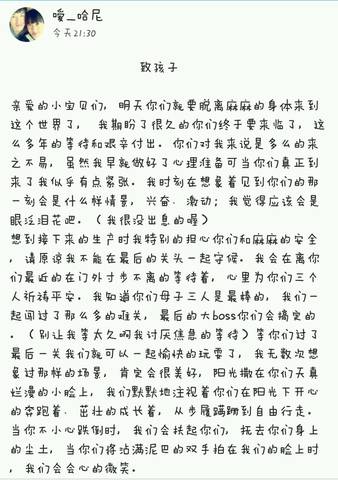 噯_哈尼
今天21:30
致孩子
亲爱的小宝贝们，明天你们就要脱离麻麻的身体来到
这个世界了，我期盼了很久的你们终于要来临了，这
么多年的等待和艰辛付出。你们对我来说是多么的来
之不易，虽然我早就做好了心理准备可当你们真正到
来了我似乎有点紧张。我时刻在想象着见到你们的那
一刻会是什么样情景，兴奋．激动；我觉得应该会是
眼泛泪花吧。（我很没出息的喔）
想到接下来的生产时我特别的担心你们和麻麻的安全
，请原谅我不能在最后的关头一起守候。我会在离你
们最近的在门外寸步不离的等待着，心里为你们三个
人祈祷平安。我知道你们母子三人是最棒的，我们一
起闯过了那么多的难关，最后的大boss你们会搞定的
。（别让我等太久啊我讨厌焦急的等待）等你们过了
最后一关我们就可以一起愉快的玩耍了，我无数次想
象过那样的场景，肯定会很美好，阳光撒在你们天真
烂漫的小脸上，我们默默地注视着你们在阳光下开心
的奔跑着．茁壮的成长着，从步履蹒跚到自由行走。
当你不小心跌倒时，我们会扶起你们，抚去你们身上
的尘土，当你们将沾满泥巴的双手拍在我们的脸上时
，我们会会心的微笑。